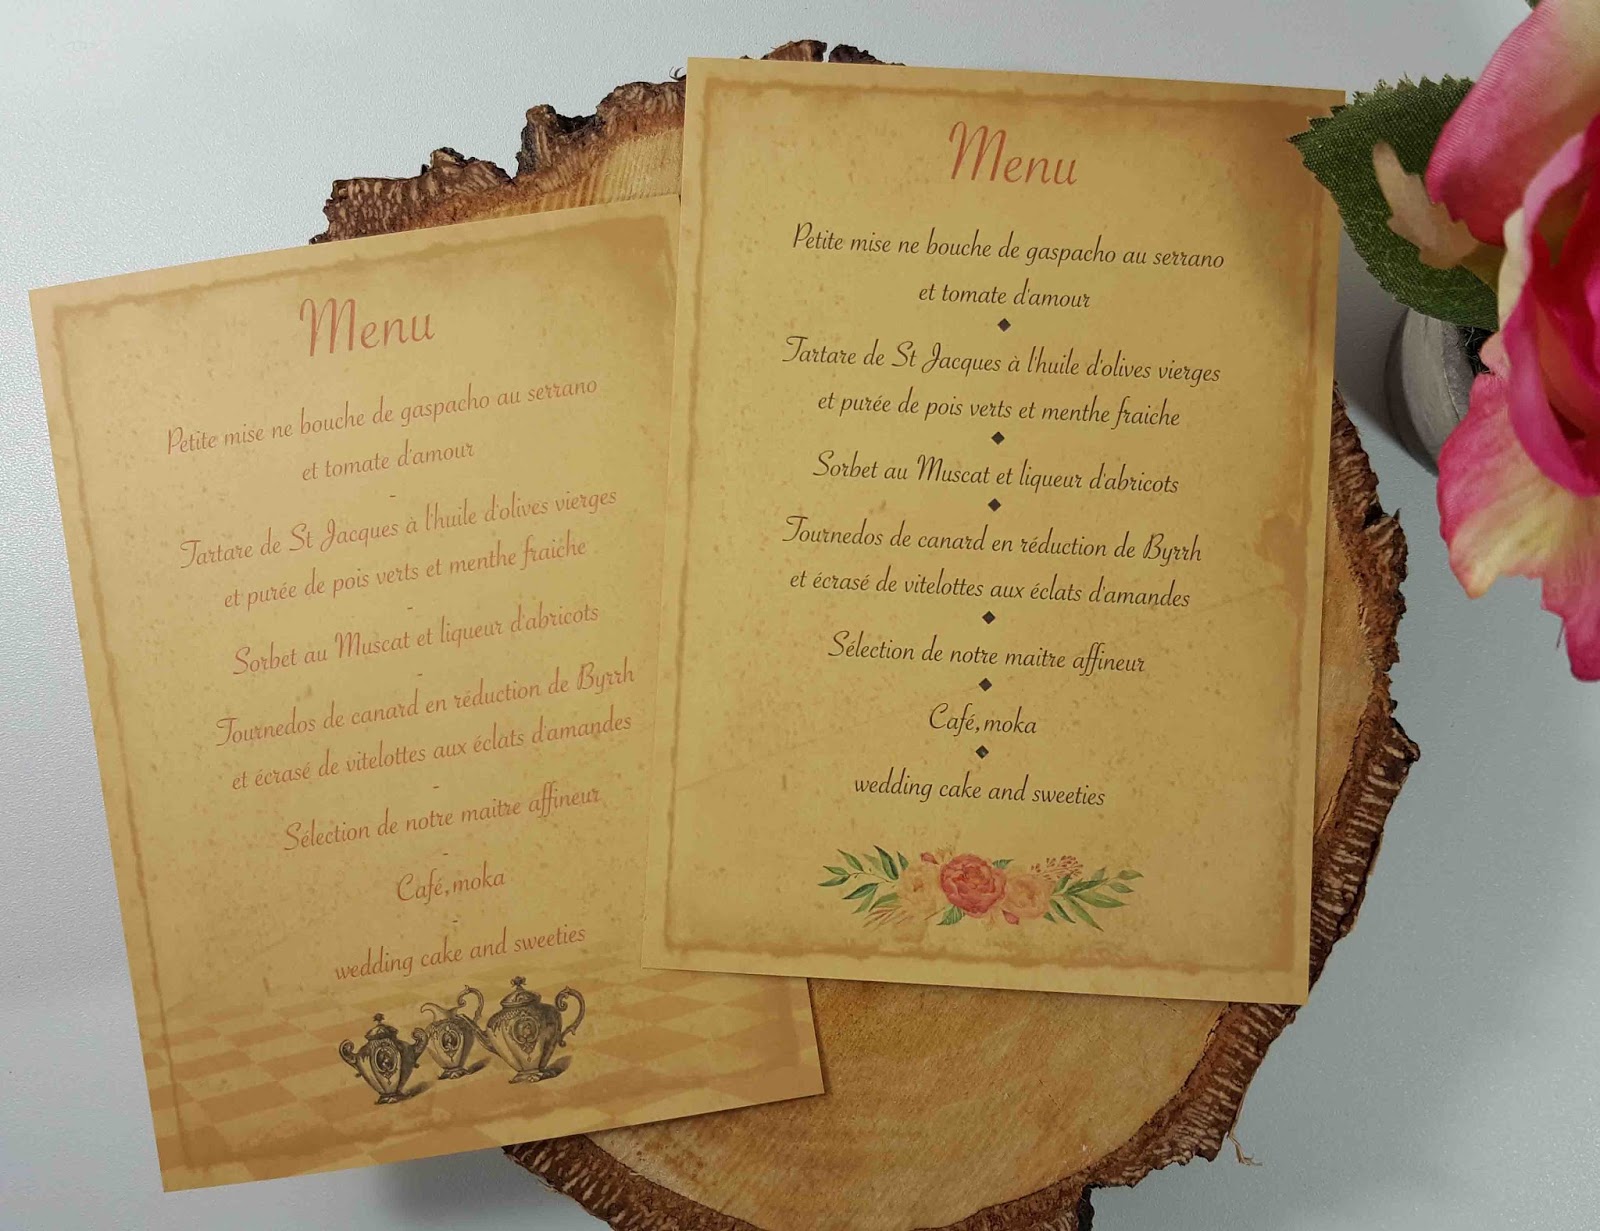 Menu
Petite mise ne bouche de gaspacho au serrano
et tomate d'amour
-
Tartare de St Jacques à l'huile d'olives vierges
et purée de pois verts et menthe fraiche
-
Sorbet au Muscat et liqueur d'abricots
-
Tournedos de canard en réduction de Byrrh
et écrasé de vitelottes aux éclats d'amandes
-
Sélection de notre maitre affineur
-
Café,moka
-
wedding cake and sweeties
Menu
Petite mise ne bouche de gaspacho au serrano
et tomate d'amour
◆
Tartare de St Jacques à l'huile d'olives vierges
et purée de pois verts et menthe fraiche
◆
Sorbet au Muscat et liqueur d'abricots
◆
Tournedos de canard en réduction de Byrrh
et écrasé de vitelottes aux éclats d'amandes
◆
Sélection de notre maitre affineur
◆
Café,moka
◆
wedding cake and sweeties